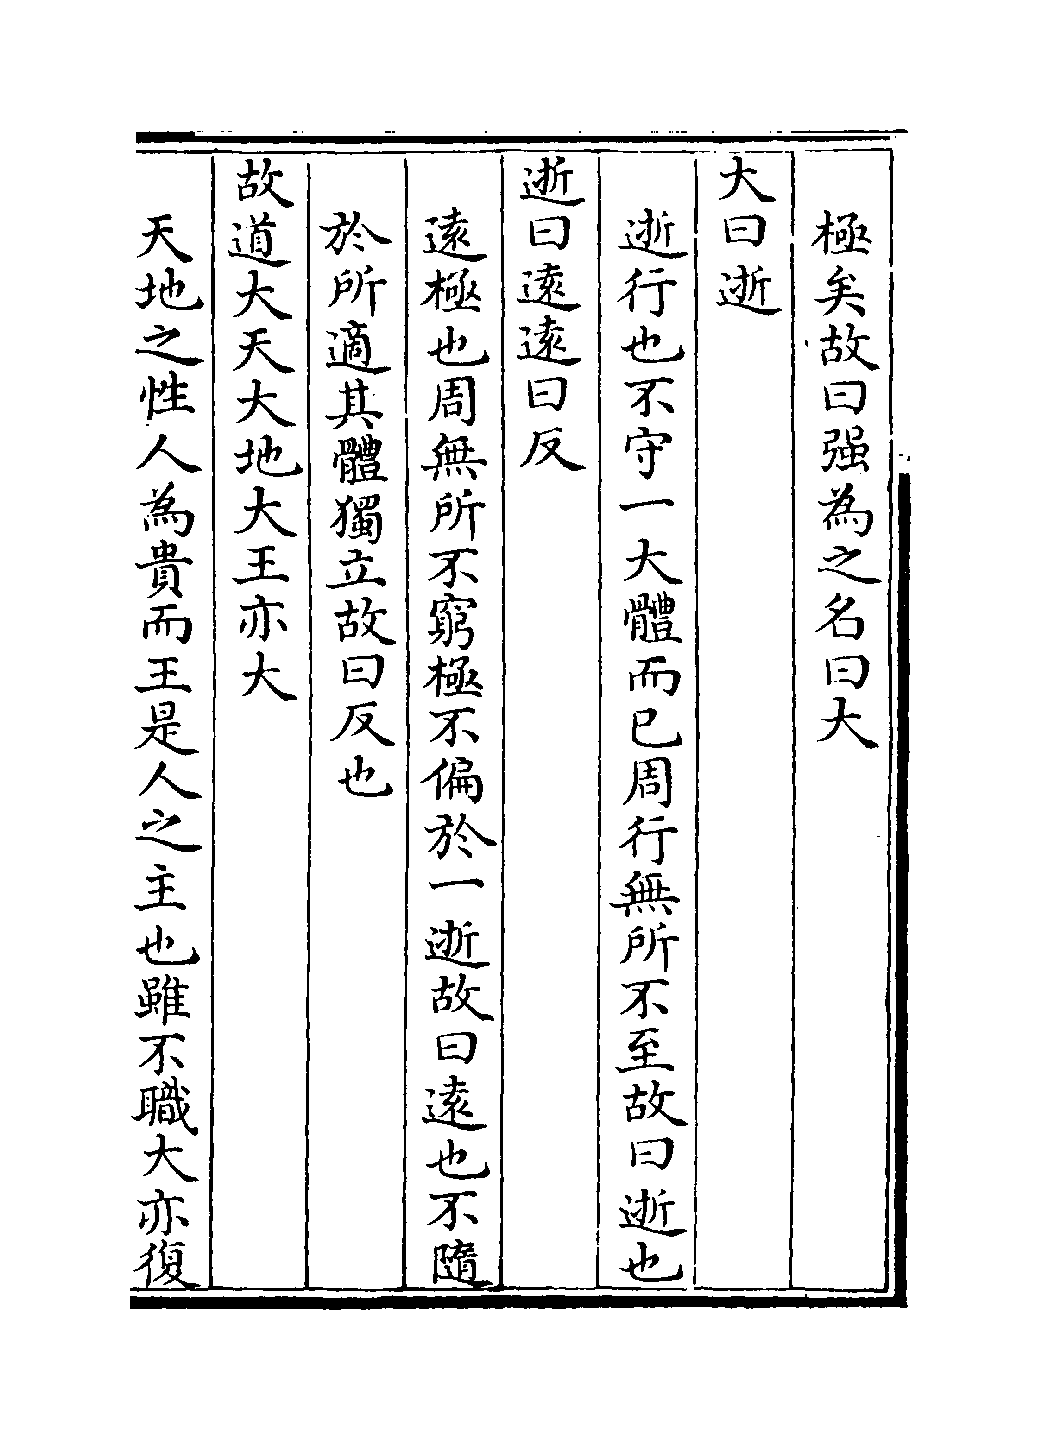 極矣故曰强為之名曰大
大曰逝
逝行也不守一大體而已周行無所不至故曰逝也
逝曰遠遠曰反
遠極也周無所不窮極不偏於一逝故曰遠也不隨
於所適其體獨立故曰反也
故道大天大地大王亦大
天地之性人為貴而王是人之主也雖不職大亦復